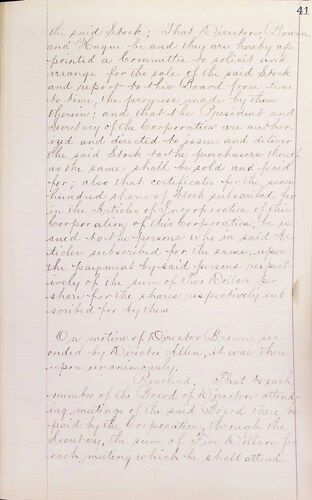 41
the said Stock; That Directors Bowen
and Hague be and they are hereby ap
pointed a Committee to solicit and
arrange for the sale of the said Stock
and report to this Board from time
to time, the progress made by them
therein; and that the President and
Secretary of the Corporation are author
ized and directed to issue and deliver
the said Stock to the purchasers thereof
as the same shall be sold and paid
for; also that certificates for the seven
hundred shares of Stock subscribed for
in the Articles of Incorporation of this
Corporation of this Corporation, be is
sued to the persons who in said Ar
ticles subscribed for the same, upon
the payment by said persons respect
ively of the sum of Two Dollars per
share for the shares respectively sub
scribed for by them.
On motion of Director Brown, sec
onded by Director Allen, it was there
upon unanimously,
Resolved, That to each
member of the Board of Directors attend
ing meetings of the said Board there be
paid by the Corporation, through the
Secretary, the sum of Five Dollars for
each meeting which he shall attend.